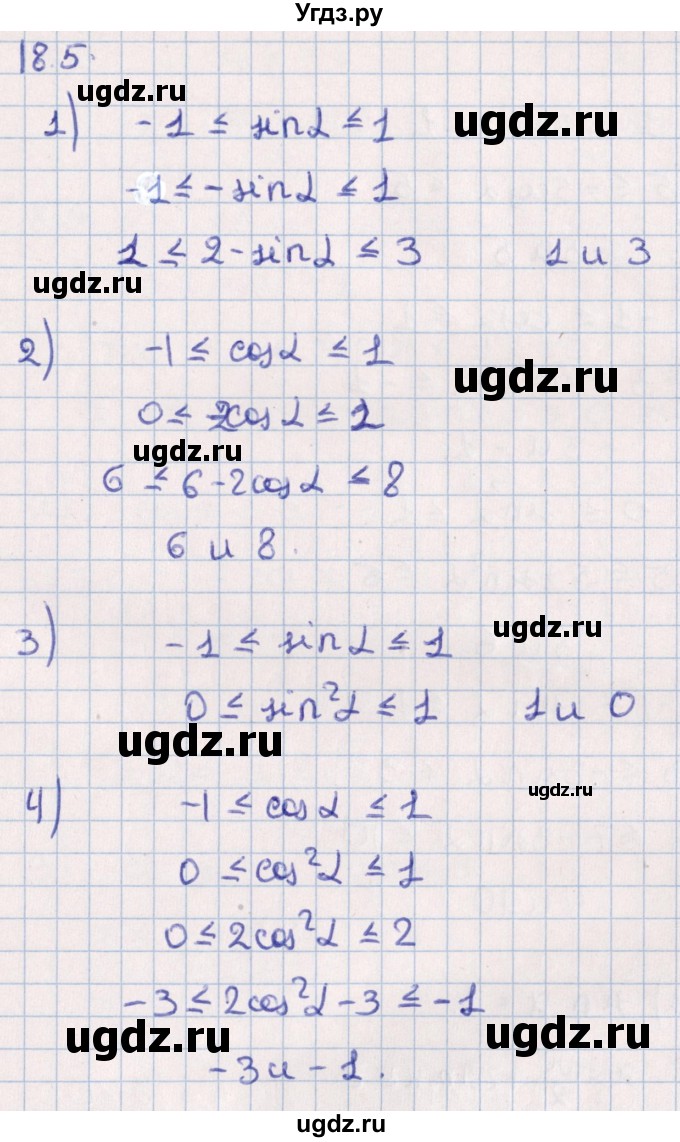 Угдз.ру
18.5.
ugdz.ru
1) -1 ≤ sin α ≤ 1
ugdz.ru
-1 ≤ -sin α ≤ 1
1 ≤ 2-sin α ≤ 3 1 и 3
ugdz.ru
2) -1 ≤ cos α ≤ 1
ugdz.ru
0 ≤ -2cos α ≤ 2
ugdz.ru
6 ≤ 6-2cos α ≤ 8
6 и 8.
ugdz.ru
3) -1 ≤ sin α ≤ 1
ugdz.ru
0 ≤ sin²α ≤ 1 1 и 0
ugdz.ru
4) -1 ≤ cos α ≤ 1
ugdz.ru
0 ≤ cos²α ≤ 1
0 ≤ 2cos²α ≤ 2
-3 ≤ 2cos²α-3 ≤ -1
ugdz.ru
ugdz.ru
-3 и -1.
ugdz.ru